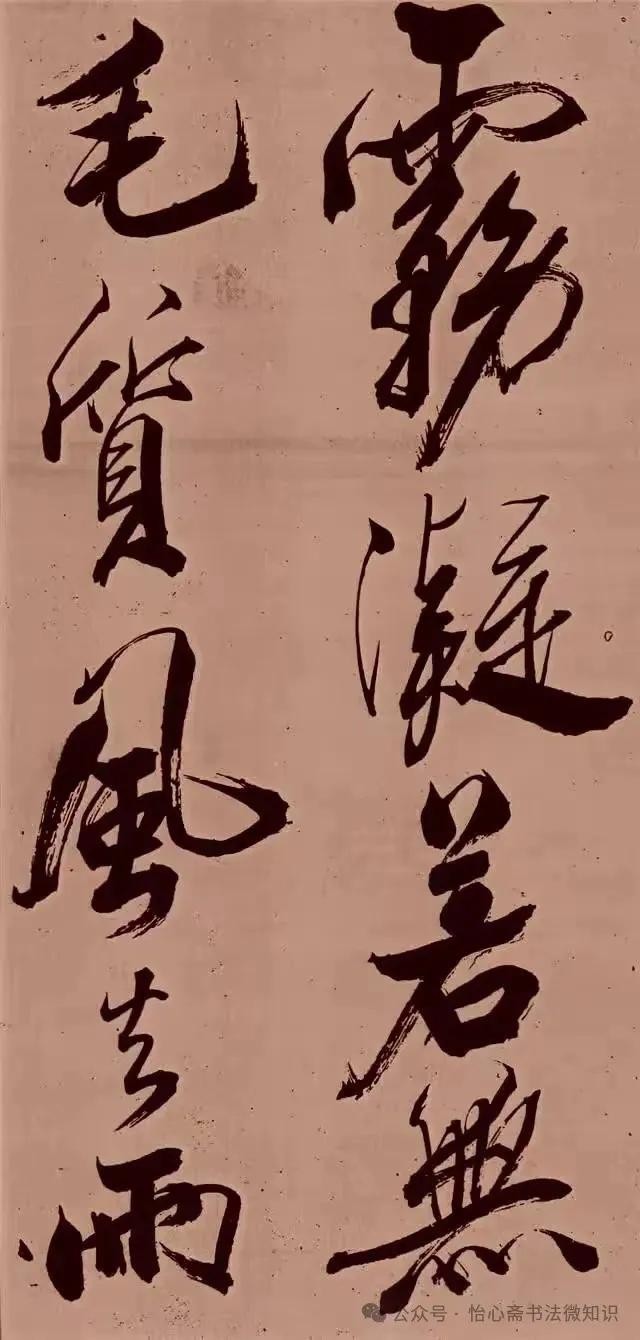 霧凝若無
毛質風去雨
公众号 · 怡心斋书法微知识